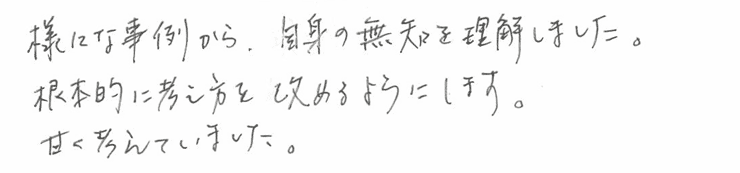 様になな事例から、自身の無知を理解しました。
根本的に考え方を改めるようにします。
甘く考えていました。